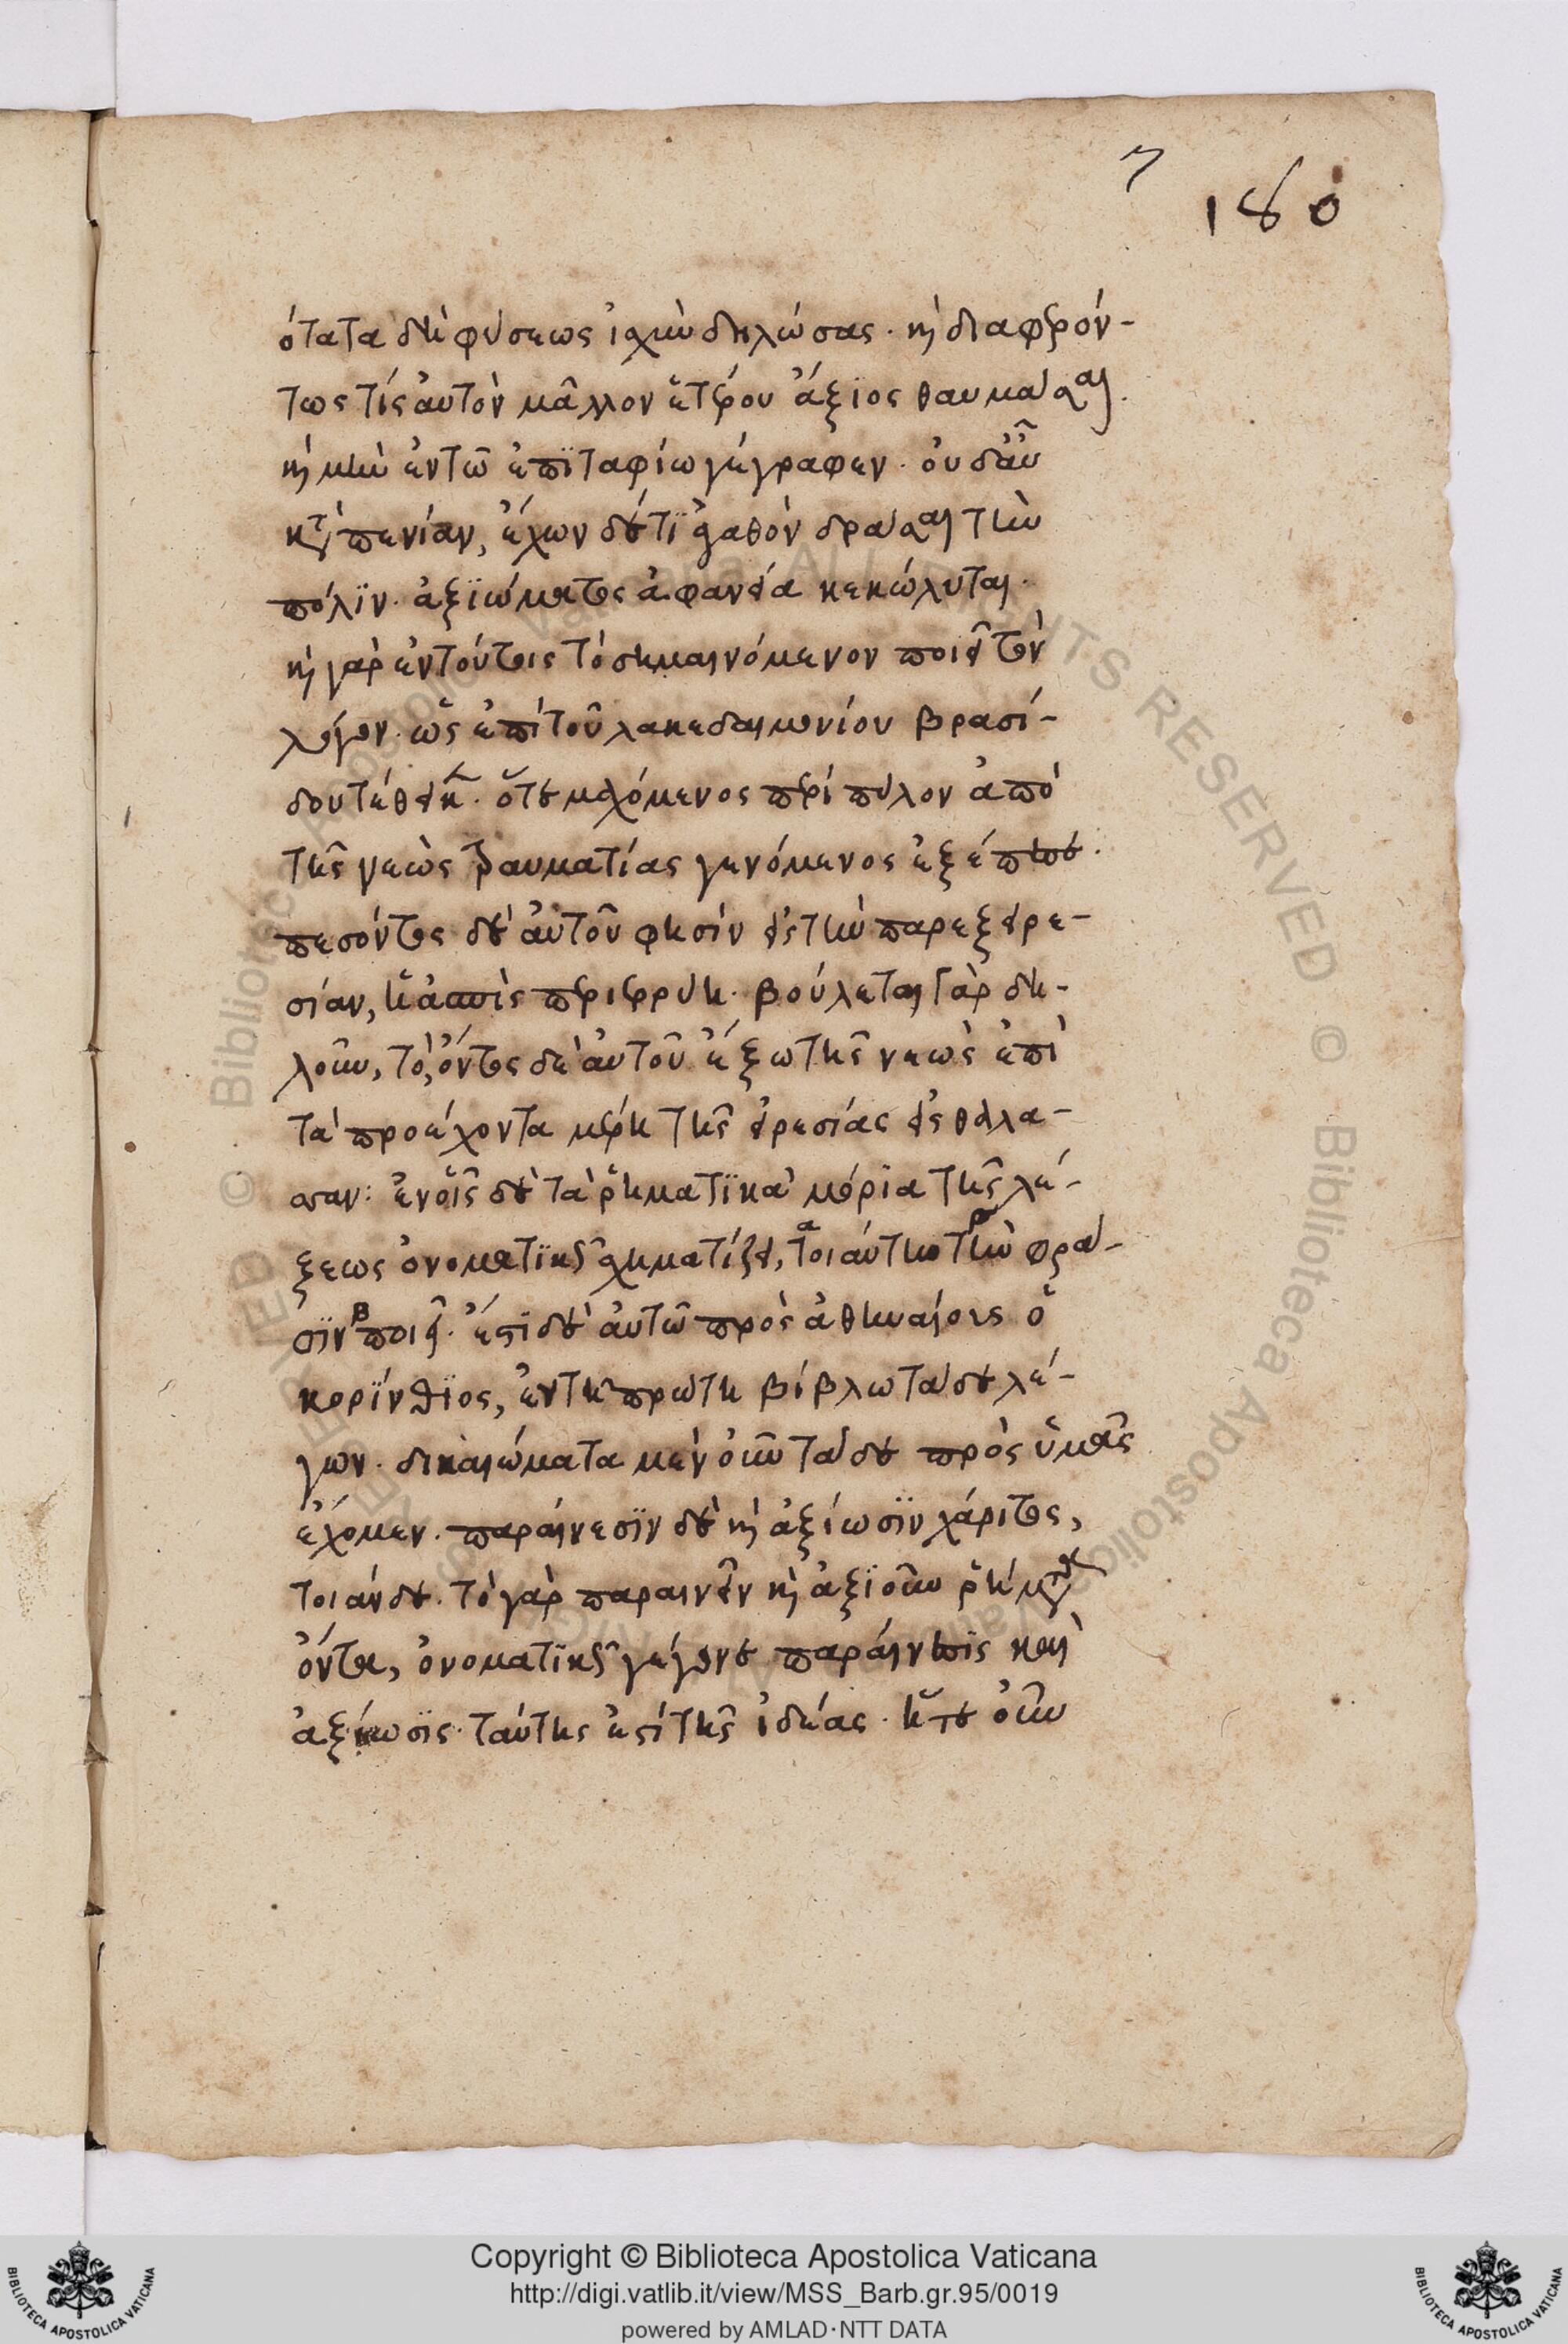 7
180
ότατα δὴ φύσεως ἰσχὺν δηλώσας. καὶ διαφερόν-
τως τίς αὐτὸν μᾶλλον ἑτέρου ἄξιος θαυμάσαι.
καὶ μὴν ἐν τῶ ἐπϊταφίω γέγραφεν. οὐδ' αὖ
κατὰ πενίαν, ἔχων δέ τϊ ἀγαθὸν δρᾶσαι τὴν
πόλϊν. ἀξϊώματος ἀφανεία κεκώλυται.
καὶ γὰρ ἐν τούτοις τὸ σημαινόμενον ποιεῖ τὸν
λόγον. ὡς ἐπὶ τοῦ λακεδαιμονίου βρασί-
δου τέθεικεν. ὅτε μαχόμενος περὶ πύλον ἀπὸ
τῆς νεὼς τραυματίας γενόμενος ἐξέπεσε.
πεσόντος δὲ αὐτοῦ φησὶν εἰς τὴν παρεξειρε-
σίαν, ἡ ἀσπὶς περιερρύη. βούλεται γὰρ δη-
λοῦν, τὸ, ὄντος δὲ αὐτοῦ ἔξω τῆς νεὼς ἐπὶ
τὰ προέχοντα μέρη τῆς εἰρεσίας εἰς θάλα-
σσαν: ἐν οἷς δὲ τὰ ῥηματϊκὰ μόρϊα τῆς λέ-
ξεως ὀνοματϊκῶς σχηματίζει, τοιαύτην τὴν φρά-
σϊν ποιεῖ. ἔστϊ δὲ αὐτῶ πρὸς ἀθηναίους ὁ
κορϊνθϊος, ἐν τῆ πρώτη βίβλω τάδε λέ-
γων. δικαιώματα μὲν οὖν τάδε πρὸς ὑμᾶς
ἔχομεν. παραίνεσϊν δὲ καὶ ἀξίωσϊν χάριτος,
τοιάνδε. τὸ γὰρ παραινεῖν καὶ ἀξϊοῦν ῥήματα
ὄντα, ὀνοματϊκῶς γέγονε παραίνεσϊς καὶ
ἀξίωσϊς. ταύτης ἐστὶ τῆς ἰδέας. ἥτε οὖν
Copyright © Biblioteca Apostolica Vaticana
http://digi.vatlib.it/view/MSS_Barb.gr.95/0019
powered by AMLAD·NTT DATA